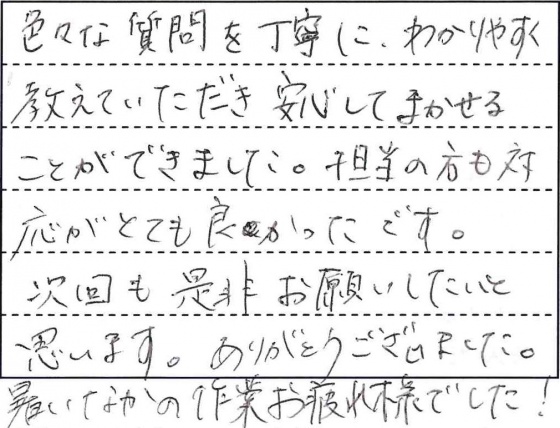 色々な質問を丁寧に、わかりやすく
教えていただき 安心してまかせる
ことができました。担当の方も対
応がとても良かったです。
次回も是非お願いしたいと
思います。ありがとうございました。
暑いなかの作業お疲れ様でした!